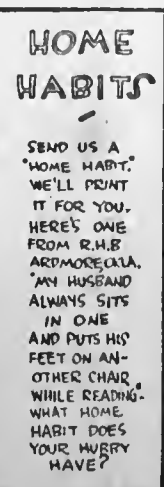 HOME
HABITS
SEND US A
"HOME HABIT."
WE'LL PRINT
IT FOR YOU.
HERE'S ONE
FROM R.H.B
ARDMORE, OKLA.
"MY HUSBAND
ALWAYS SITS
IN ONE
AND PUTS HIS
FEET ON AN-
OTHER CHAIR
WHILE READING."
WHAT HOME
HABIT DOES
YOUR HUBBY
HAVE?